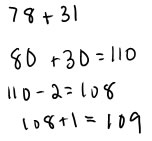 78 + 31
80 + 30 = 110
110 - 2 = 108
108 + 1 = 109